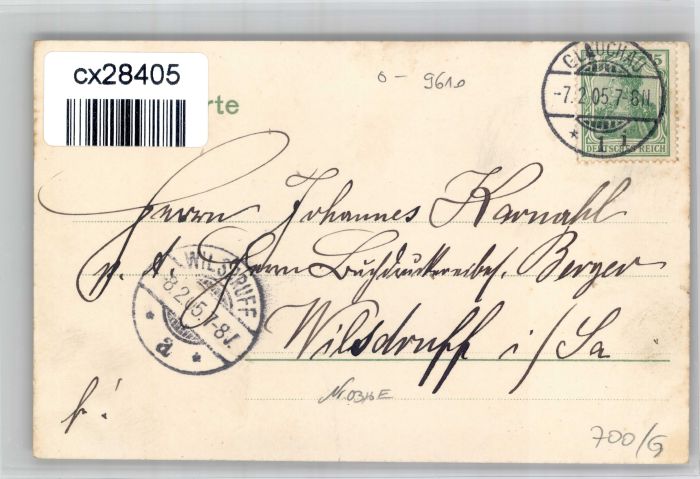 cx28405
o - 9610
rte
GLAUCHAU
-7.2.05.7-8N.
* 1 1
5
DEUTSCHES REICH
Herrn Johannes Karnahl
p. A. Herrn Buchdruckereibes. Berger
Wilsdruff i/Sa
WILSDRUFF
-8.2.05.7-8V.
* a *
fr!
700/G